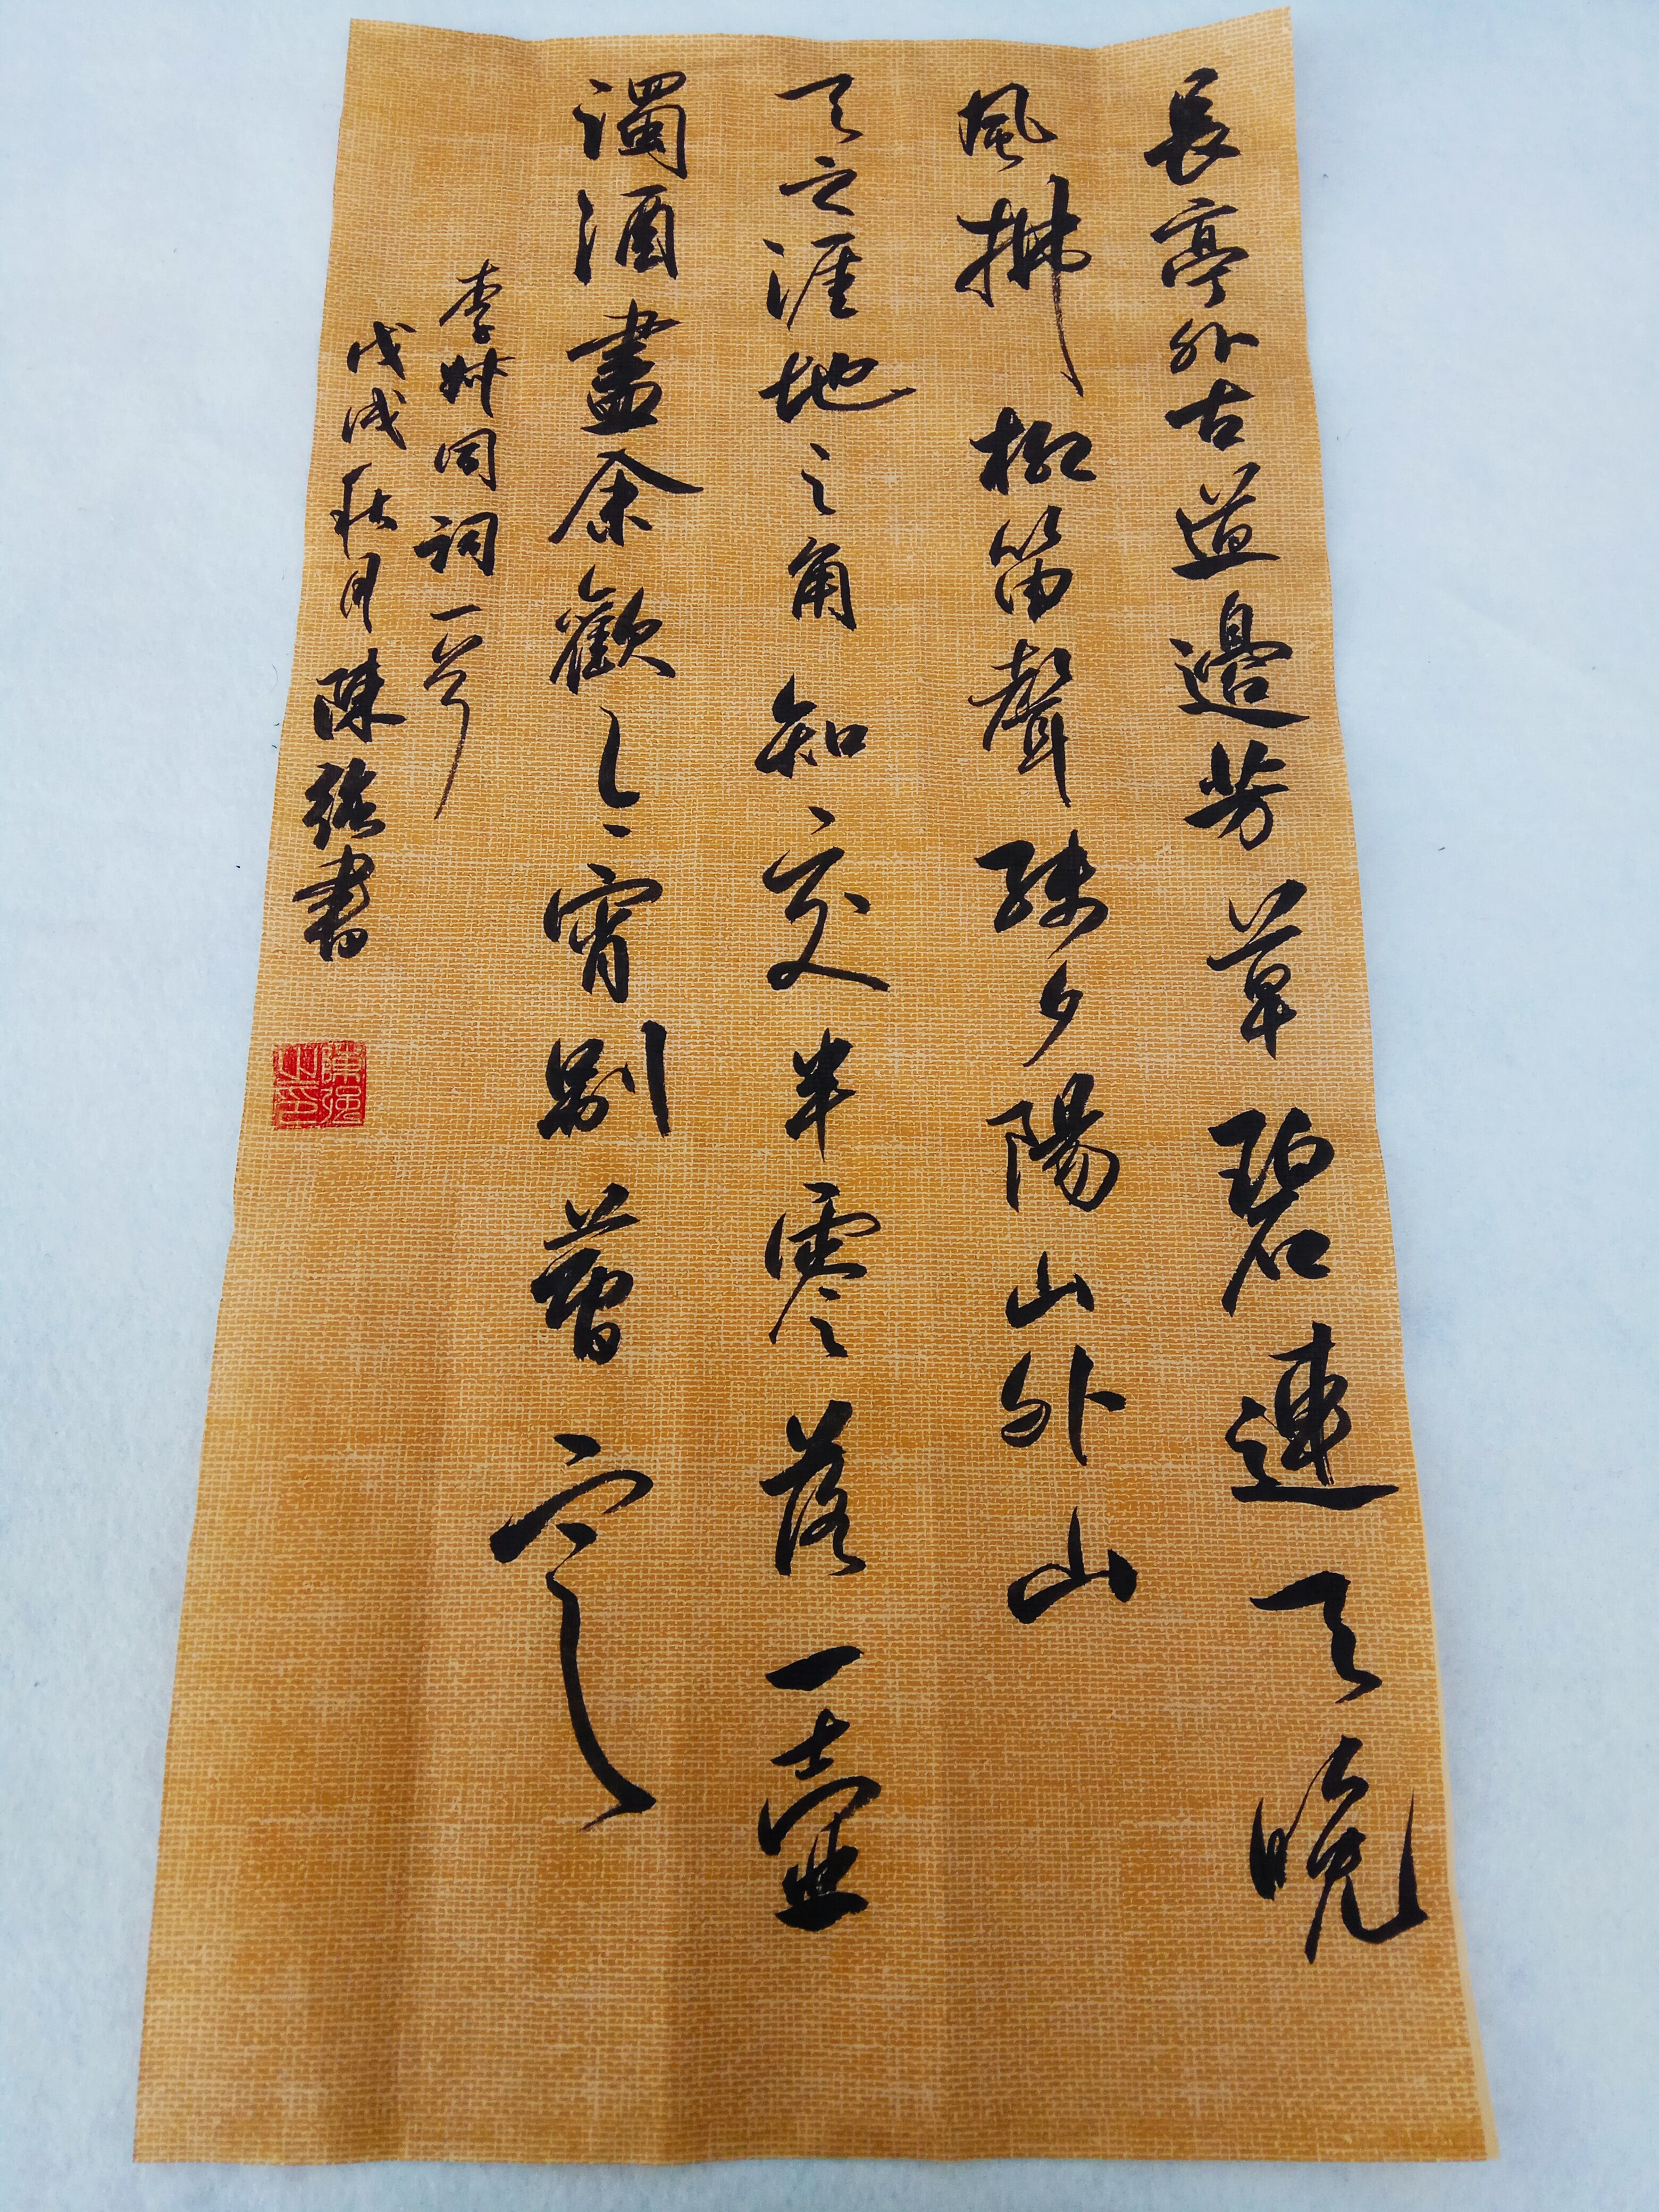 長亭外古道邊芳草碧連天晚
風拂柳笛聲殘夕陽山外山
天之涯地之角知交半零落一壺
濁酒盡余歡今宵別夢寒
李叔同詞一首
戊戌秋月陳強書
陳強之印